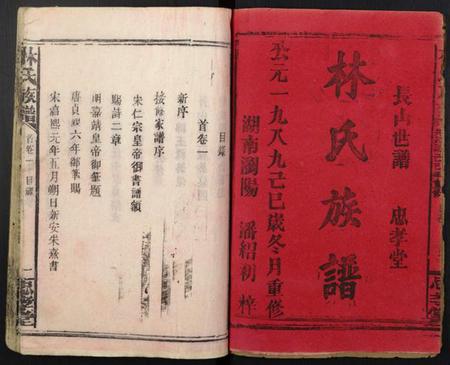 長山世譜 忠孝堂
林氏族譜
公元一九八九己巳歲冬月重修
湖南瀏陽 潘紹初 梓
目錄
首卷一
新序
接修家譜序
宋仁宗皇帝御書譜額
賜詩二章
明嘉靖皇帝御筆題
唐貞觀六年御筆賜
宋嘉熙元年五月朔日新安朱熹書
林氏族譜 首卷一 目錄 一